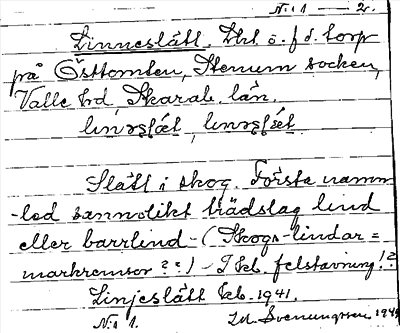 N:o 1 — 2.
Linneslätt, Lht å. f. d. torp
på Östtomten, Stenum socken,
Valle hd, Skarab. län.
Slätt i skog. Första namn-
-led sannolikt trädslag lind
eller barrlind - (Skogs-lindar =
markremsor??) - I kb. felstavning!?
Linjeslätt kb. 1941.
N:o 1. Svenungsson 1949